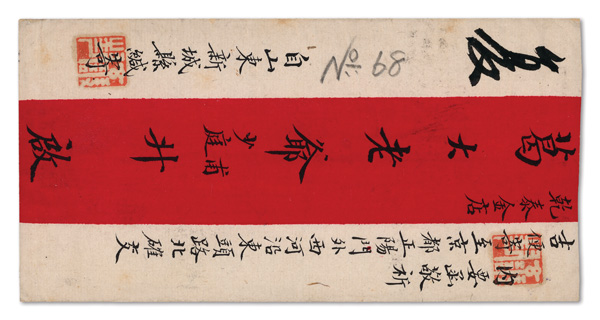 內要函敬祈
吉便寄至京都正陽門外西河沿東頭路北確交
乾泰金店
葛大老爺少庭甫升啟
自山東新城縣緘寄
No. 68